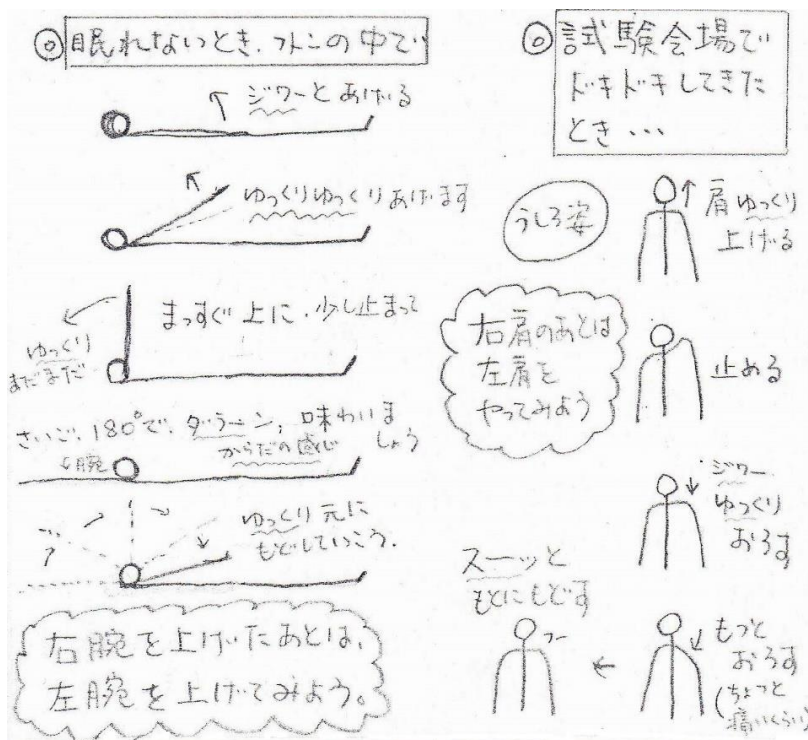 ◎眠れないとき、フトンの中で
ジワーとあげる
ゆっくりゆっくりあげます
まっすぐ上に、少し止まって
ゆっくり
まだまだ
さいご、180°で、ダラーン、味わいましょう
からだの感じ
腕
ゆっくり元に
もどしていこう。
右腕を上げたあとは、
左腕を上げてみよう。
◎試験会場で
ドキドキしてきた
とき…
うしろ姿
肩ゆっくり
上げる
右肩のあとは
左肩を
やってみよう
止める
ジワー
ゆっくり
おろす
もっと
おろす
(ちょっと
痛いくらい)
スーッと
もとにもどす
フー